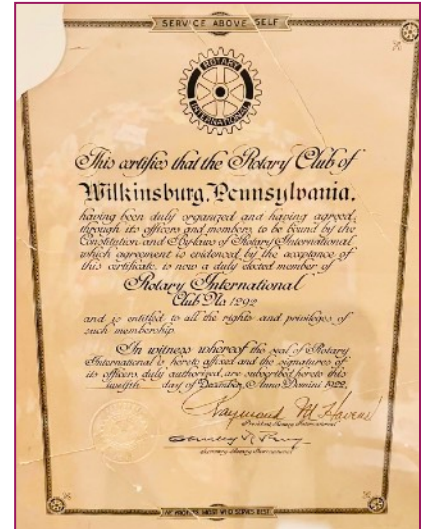 SERVICE ABOVE SELF
ROTARY
INTERNATIONAL
This certifies that the Rotary Club of
Wilkinsburg, Pennsylvania,
having been duly organized and having agreed,
through its officers and members, to be bound by the
Constitution and By-laws of Rotary International
which agreement is evidenced by the acceptance of
this certificate, is now a duly elected member of
Rotary International
Club No. 1292
and is entitled to all the rights and privileges of
such membership.
In witness whereof the seal of Rotary
International is hereto affixed and the signatures of
its officers, duly authorized, are subscribed hereto this
twelfth day of December, Anno Domini 1922.
Raymond M. Havens
President Rotary International
Secretary Rotary International
HE PROFITS MOST WHO SERVES BEST